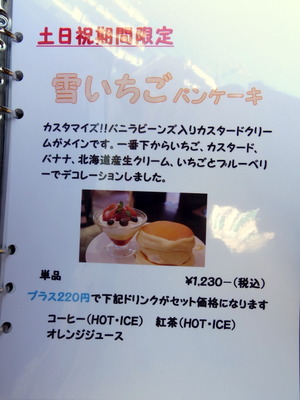 土日祝期間限定
雪いちごパンケーキ
カスタマイズ!!バニラビーンズ入りカスタードクリー
ムがメインです。一番下からいちご、カスタード、
バナナ、北海道産生クリーム、いちごとブルーベリー
でデコレーションしました。
単品 ¥1,230-(税込)
プラス220円で下記ドリンクがセット価格になります
コーヒー(HOT・ICE) 紅茶(HOT・ICE)
オレンジジュース